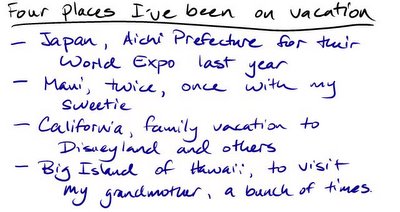 Four places I've been on vacation
- Japan, Aichi Prefecture for their
World Expo last year
- Maui, twice, once with my
sweetie
- California, family vacation to
Disneyland and others
- Big Island of Hawaii, to visit
my grandmother, a bunch of times.